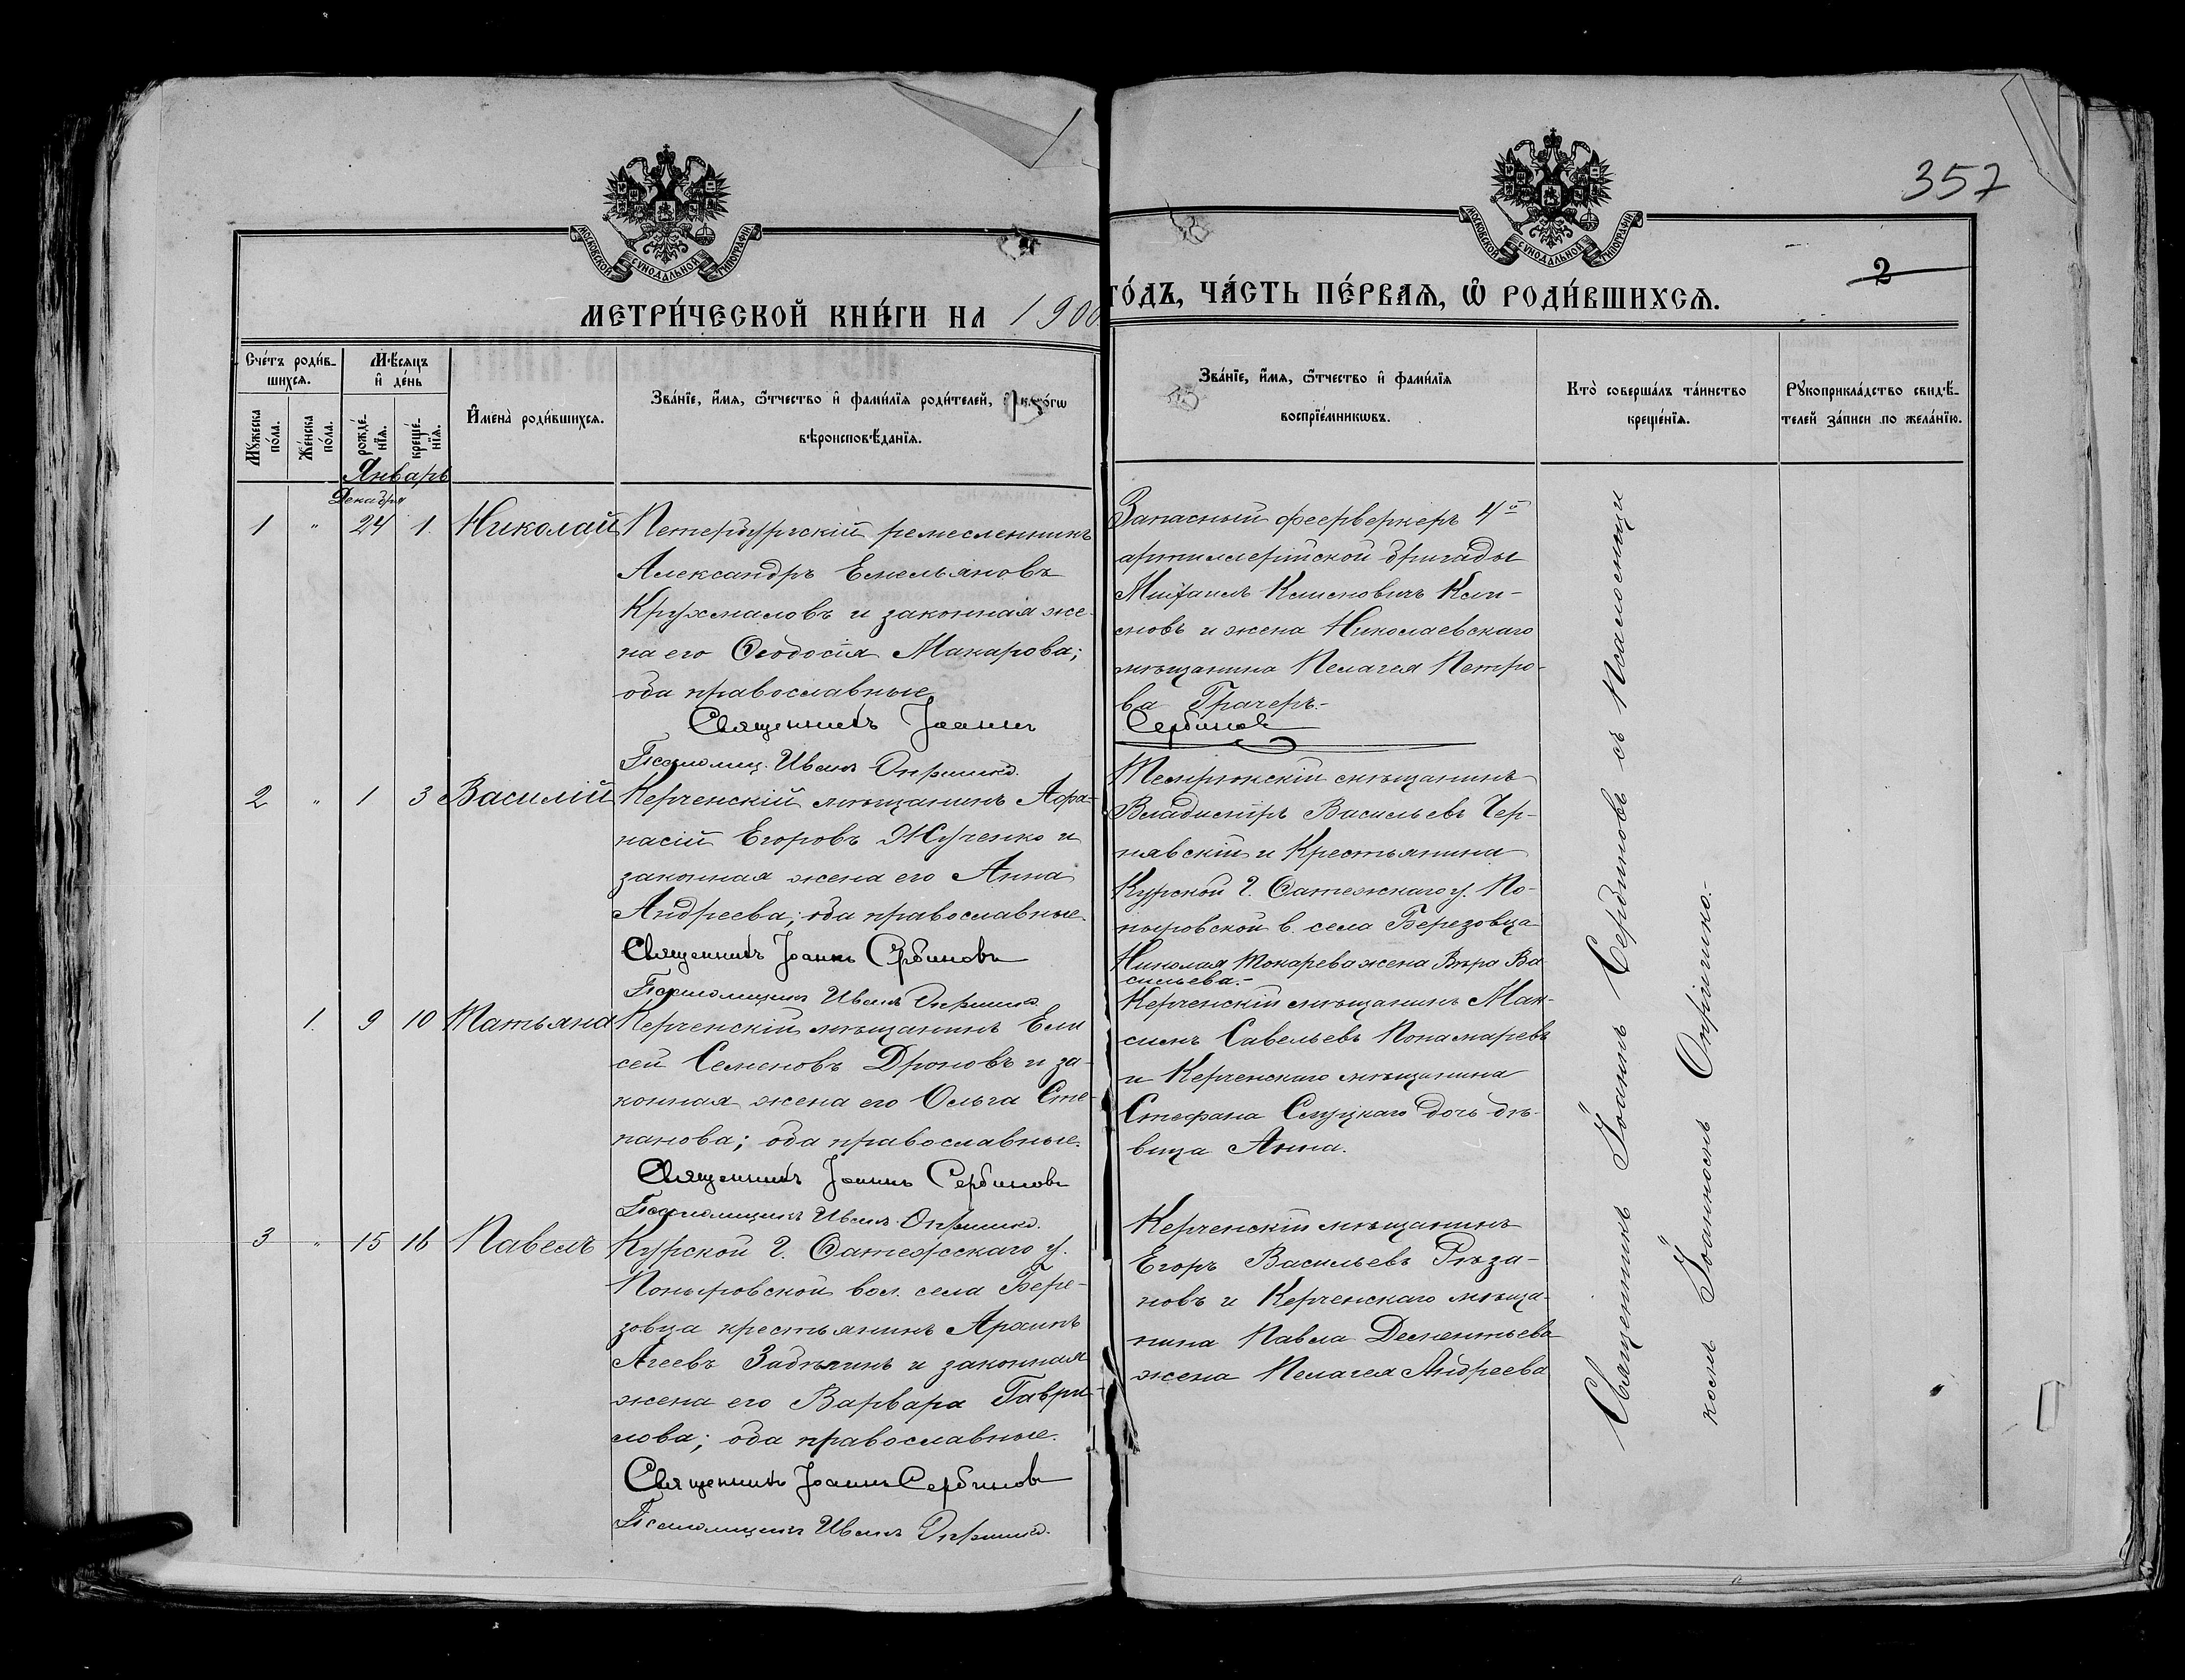 357
2
МОСКОВСКОЙ СУНОДАЛЬНОЙ ТИПОГРАФІИ
МОСКОВСКОЙ СУНОДАЛЬНОЙ ТИПОГРАФІИ
МЕТРИ́ЧЕСКОЙ КНИ́ГИ НА 1900
ГО́ДЪ, ЧА́СТЬ ПЕ́РВАѦ, Ѡ҆ РОДИ́ВШИХСѦ.
Сче́тъ роди́в-
шихсѧ.
Мѣ́сѧцъ
и҆ де́нь
Мꙋ́жеска
по́ла.
Же́нска
по́ла.
рожде́-
нїѧ.
креще́-
нїѧ.
И҆мена̀ роди́вшихсѧ.
Зва́нїе, и҆́мѧ, ѻ҆́тчество и҆ фами́лїѧ роди́телей, и҆ како́гѡ
вѣроисповѣ́данїѧ.
Зва́нїе, и҆́мѧ, ѻ҆́тчество и҆ фами́лїѧ
воспрїе́мникѡвъ.
Кто̀ соверша́лъ та́инство
креще́нїѧ.
Рꙋкоприкла́дство свидѣ́-
телей за́писи по жела́нїю.
Январь
Декабря
1 " 24 1. Николай
Петербургскій ремесленникъ
Александръ Емельяновъ
Крухмаловъ и законная же-
на его Ѳеодосія Макарова;
оба православные
Священникъ Іоаннъ
Сербиновъ
Псаломщ. Иванъ
Запасный феерверкеръ 4й
артиллерійской бригады
Михаилъ Климовичъ Кли-
мовъ и жена Николаевскаго
мѣщанина Пелагея Петро-
ва Грачеръ.-
2 " 1 3 Василій
Керченскій мѣщанинъ Афа-
насій Егоровъ Жученко и
законная жена его Анна
Андреева; оба православные.
Священникъ Іоаннъ Сербиновъ
Псаломщикъ Иванъ
Темрюкскій мѣщанинъ
Владиміръ Васильевъ Чер-
нявскій и Крестьянина
Курской г. Фатежскаго у. По-
ныровской в. села Березовца
Николая Токарева жена Вѣра Ва
сильева.-
1. 9 10 Татьяна
Керченскій мѣщанинъ Ели
сей Семеновъ Дроновъ и за-
конная жена его Ольга Сте-
панова; оба православные.
Священникъ Іоаннъ Сербиновъ
Псаломщикъ Иванъ
Керченскій мѣщанинъ Мак-
симъ Савельевъ Понамаревъ
и Керченскаго мѣщанина
Стефана Слуцкаго дочь дѣ-
вица Анна.
3 " 15 16 Павелъ
Курской г. Фатежскаго у.
Поныровской вол. села Бере-
зовца крестьянинъ
Агеевъ и законная
жена его Варвара Гаври-
лова; оба православные.
Священникъ Іоаннъ Сербиновъ
Псаломщикъ Иванъ
Керченскій мѣщанинъ
Егоръ Васильевъ Рѣза-
новъ и Керченскаго мѣща-
нина Павла Дементьева
жена Пелагея Андреева
Священникъ Іоаннъ Сербиновъ съ Псаломщи
комъ Іоанномъ